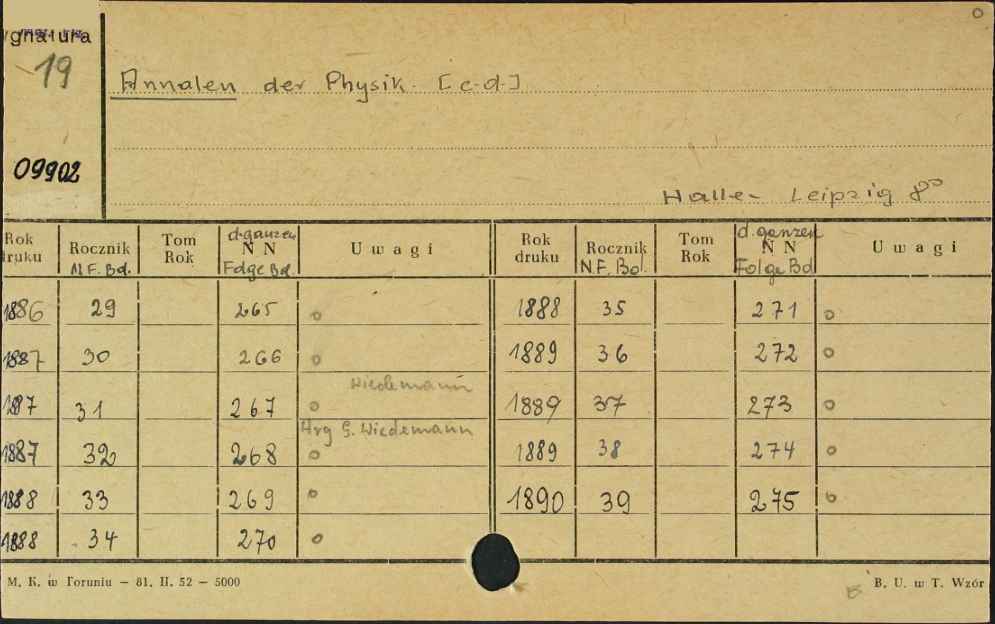 ygnatura
19
Annalen der Physik. [c.d.]
09902
Halle - Leipzig 8°
Rok druku Rocznik N.F. Bd. Tom Rok d. ganzen N N Folge Bd. U w a g i Rok druku Rocznik N.F. Bd. Tom Rok d. ganzen N N Folge Bd U w a g i
1886 29 265 o 1888 35 271 o
1887 30 266 o 1889 36 272 o
Wiedemann
1887 31 267 o 1889 37 273 o
Hrg G. Wiedemann
1887 32 268 o 1889 38 274 o
1888 33 269 o 1890 39 275 o
1888 34 270 o
M. K. w Toruniu — 81. II. 52 — 5000 B. U. w T. Wzór